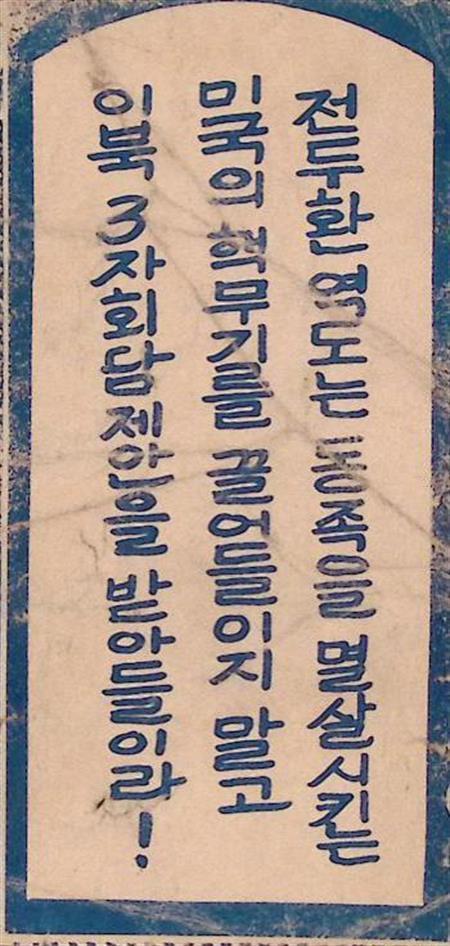 전두환 역도는 동족을 멸살시킨는
미국의 핵무기를 끌어들이지 말고
이북 3자회담제안을 받아들이라!